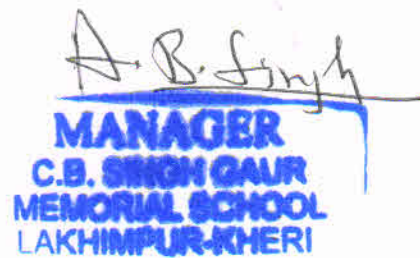 A. B. Singh
MANAGER
C.B. SINGH GAUR
MEMORIAL SCHOOL
LAKHIMPUR-KHERI